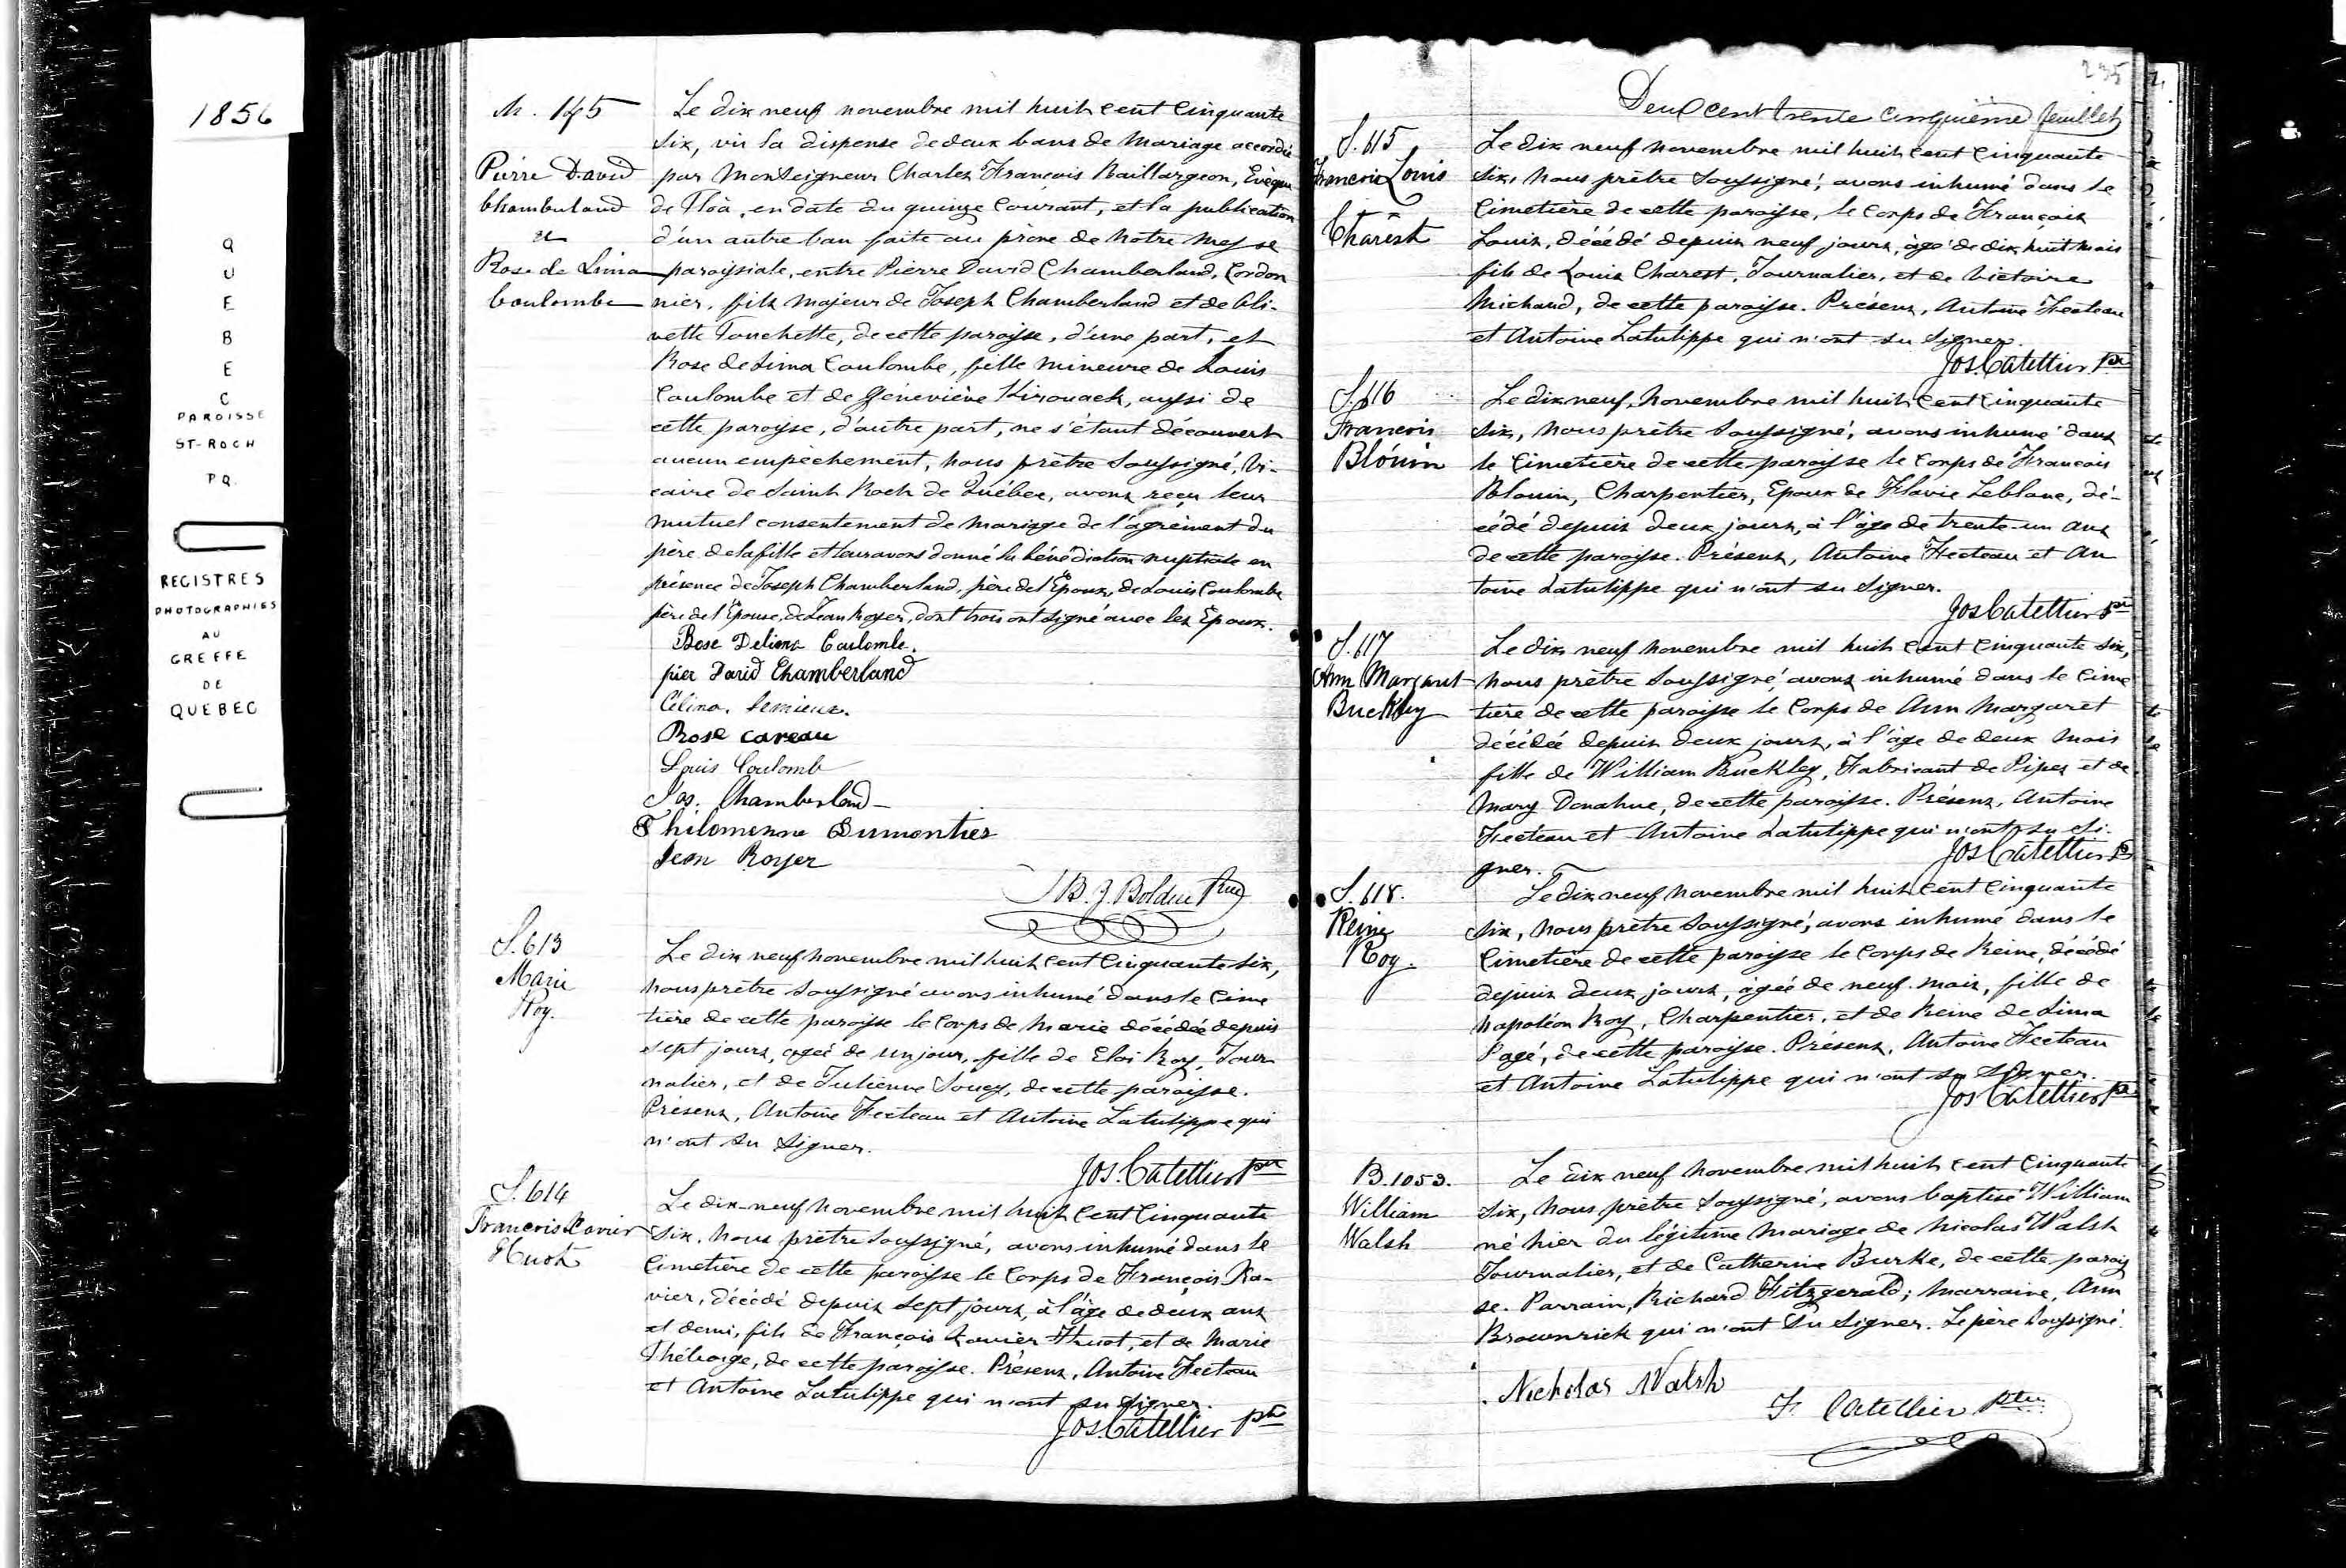 1856
QUEBEC
PAROISSE
ST-ROCH
PQ.
REGISTRES
PHOTOGRAPHIES
AU
GREFFE
DE
QUEBEC
M. 145
Pierre David
Chamberland
et
Rose de Lima
Coulombe
Le dix neuf novembre mil huit cent cinquante
six, vu la dispense de deux bans de mariage accordée
par Monseigneur Charles François Baillargeon, Evêque
de Tloa, en date du quinze courant, et la publication
d'un autre ban faite au prône de notre messe
paroissiale, entre Pierre David Chamberland, Cordon
nier, fils majeur de Joseph Chamberland et de Oli-
vette Touchette, de cette paroisse, d'une part, et
Rose de Lima Coulombe, fille mineure de Louis
Coulombe et de Géneviève Kirouack, aussi de
cette paroisse, d'autre part, ne s'étant découvert
aucun empêchement, nous prêtre soussigné, Vi-
caire de Saint Roch de Québec, avons reçu leur
mutuel consentement de mariage de l'agrément du
père de la fille et leur avons donné la bénédiction nuptiale en
présence de Joseph Chamberland, père de l'Epoux, de Louis Coulombe
père de l'Epouse, de Jean Royer, dont trois ont signé avec les Epoux.
Rose Delima Coulombe.
pier David Chamberland
Célina Lemieux.
Rose careau
Louis Coulomb
Jos. Chamberland
Philomenne Dumontier
Jean Royer
J B. Z. Bolduc Ptre
S. 613
Marie
Roy.
Le dix neuf novembre mil huit cent cinquante six,
nous prêtre soussigné avons inhumé dans le cime
tière de cette paroisse le corps de Marie décédée depuis
sept jours, agée de un jour, fille de Eloi Roy, Jour
nalier, et de Julienne Soucy, de cette paroisse.
Présens, Antoine Fecteau et Antoine Latulippe qui
n'ont su signer.
Jos. Catellier Ptre
S. 614
François Xavier
Huot
Le dix-neuf novembre mil huit cent cinquante
six, nous prêtre soussigné, avons inhumé dans le
Cimetière de cette paroisse le corps de François Xa-
vier, décédé depuis sept jours, à l'âge de deux ans
et demi, fils de François Xavier Huot, et de Marie
Théberge, de cette paroisse. Présens, Antoine Fecteau
et Antoine Latulippe qui n'ont su signer.
Jos. Catellier ptre
235
Deux cent trente cinquième feuillet
S. 615
François Louis
Charest
Le dix neuf novembre mil huit cent cinquante
six, nous prêtre soussigné, avons inhumé dans le
Cimetière de cette paroisse, le corps de François
Louis, décédé depuis neuf jours, âgé de dix huit mois
fils de Louis Charest, Journalier, et de Victoire
Michaud, de cette paroisse. Présens, Antoine Fecteau
et Antoine Latulippe qui n'ont su signer.
Jos. Catellier Ptre
S. 616
François
Blouin
Le dix neuf novembre mil huit cent cinquante
six, nous prêtre soussigné, avons inhumé dans
le Cimetière de cette paroisse le corps de François
Blouin, Charpentier, Epoux de Flavie Leblanc, dé-
cédé depuis deux jours, à l'âge de trente-un ans
de cette paroisse. Présens, Antoine Fecteau et An
toine Latulippe qui n'ont su signer.
Jos Catellier Ptre
S. 617
Ann Margaret
Buckley
Le dix neuf novembre mil huit cent cinquante six,
nous prêtre soussigné, avons inhumé dans le cime
tière de cette paroisse le corps de Ann Margaret
décédée depuis deux jours, à l'âge de deux mois
fille de William Buckley, Fabricant de Pipes et de
Mary Donahue, de cette paroisse. Présens, Antoine
Fecteau et Antoine Latulippe qui n'ont su si-
gner.
Jos Catellier Ptre
S. 618.
Reine
Roy.
Le dix neuf novembre mil huit cent cinquante
six, nous prêtre soussigné, avons inhumé dans le
Cimetière de cette paroisse le corps de Reine, décédé
depuis deux jours, agée de neuf mois, fille de
Napoléon Roy, Charpentier, et de Reine de Lima
Pagé, de cette paroisse. Présens, Antoine Fecteau
et Antoine Latulippe qui n'ont su signer.
Jos Catellier Ptre
B. 1053.
William
Walsh
Le dix neuf novembre mil huit cent cinquante
six, nous prêtre soussigné, avons baptisé William
né hier du légitime mariage de Nicolas Walsh
Journalier, et de Catherine Burke, de cette parois
se. Parrain, Richard Fitzgerald; marraine, Ann
Brownrick qui n'ont su signer. Le père soussigné.
Nicholas Walsh
F. Catellier ptre